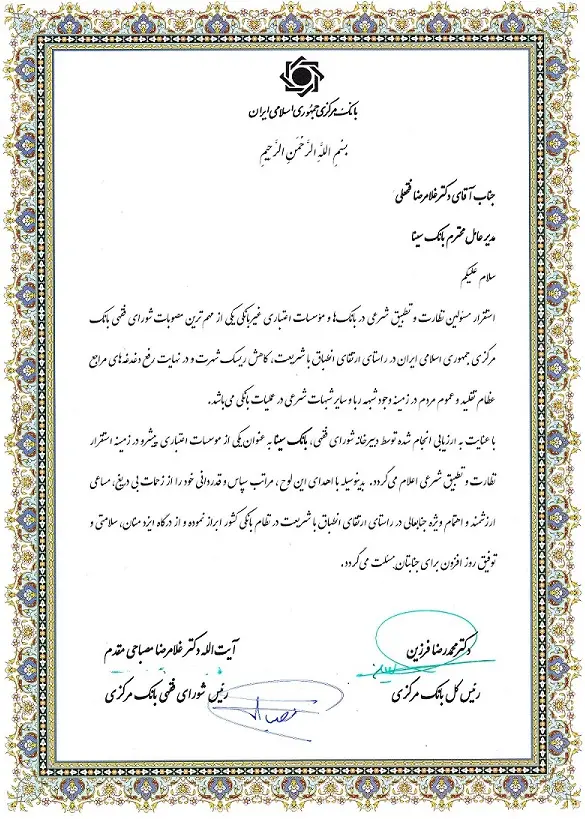 بانک مرکزی جمهوری اسلامی ایران
بِسْمِ اللَّهِ الرَّحْمَنِ الرَّحِيمِ
جناب آقای دکتر غلامرضا فتحعلی
مدیر عامل محترم بانک سینا
سلام علیکم
استقرار مسئولین نظارت و تطبیق شرعی در بانک‌ها و مؤسسات اعتباری غیربانکی یکی از مهم ترین مصوبات شورای فقهی بانک
مرکزی جمهوری اسلامی ایران در راستای ارتقای انطباق با شریعت، کاهش ریسک شهرت و در نهایت رفع دغدغه‌های مراجع
عظام تقلید و عموم مردم در زمینه وجود شبهه ربا و سایر شبهات شرعی در عملیات بانکی می‌باشد.
با عنایت به ارزیابی انجام شده توسط دبیرخانه شورای فقهی، بانک سینا به عنوان یکی از مؤسسات اعتباری پیشرو در زمینه استقرار
نظارت و تطبیق شرعی اعلام می‌گردد. بدینوسیله با اهدای این لوح، مراتب سپاس و قدردانی خود را از زحمات بی دریغ، مساعی
ارزشمند و اهتمام ویژه جنابعالی در راستای ارتقای انطباق با شریعت در نظام بانکی کشور ابراز نموده و از درگاه ایزد منان، سلامتی و
توفیق روز افزون برای جنابتان مسئلت می‌گردد.
دکتر محمدرضا فرزین
رئیس کل بانک مرکزی
آیت الله دکتر غلامرضا مصباحی مقدم
رئیس شورای فقهی بانک مرکزی